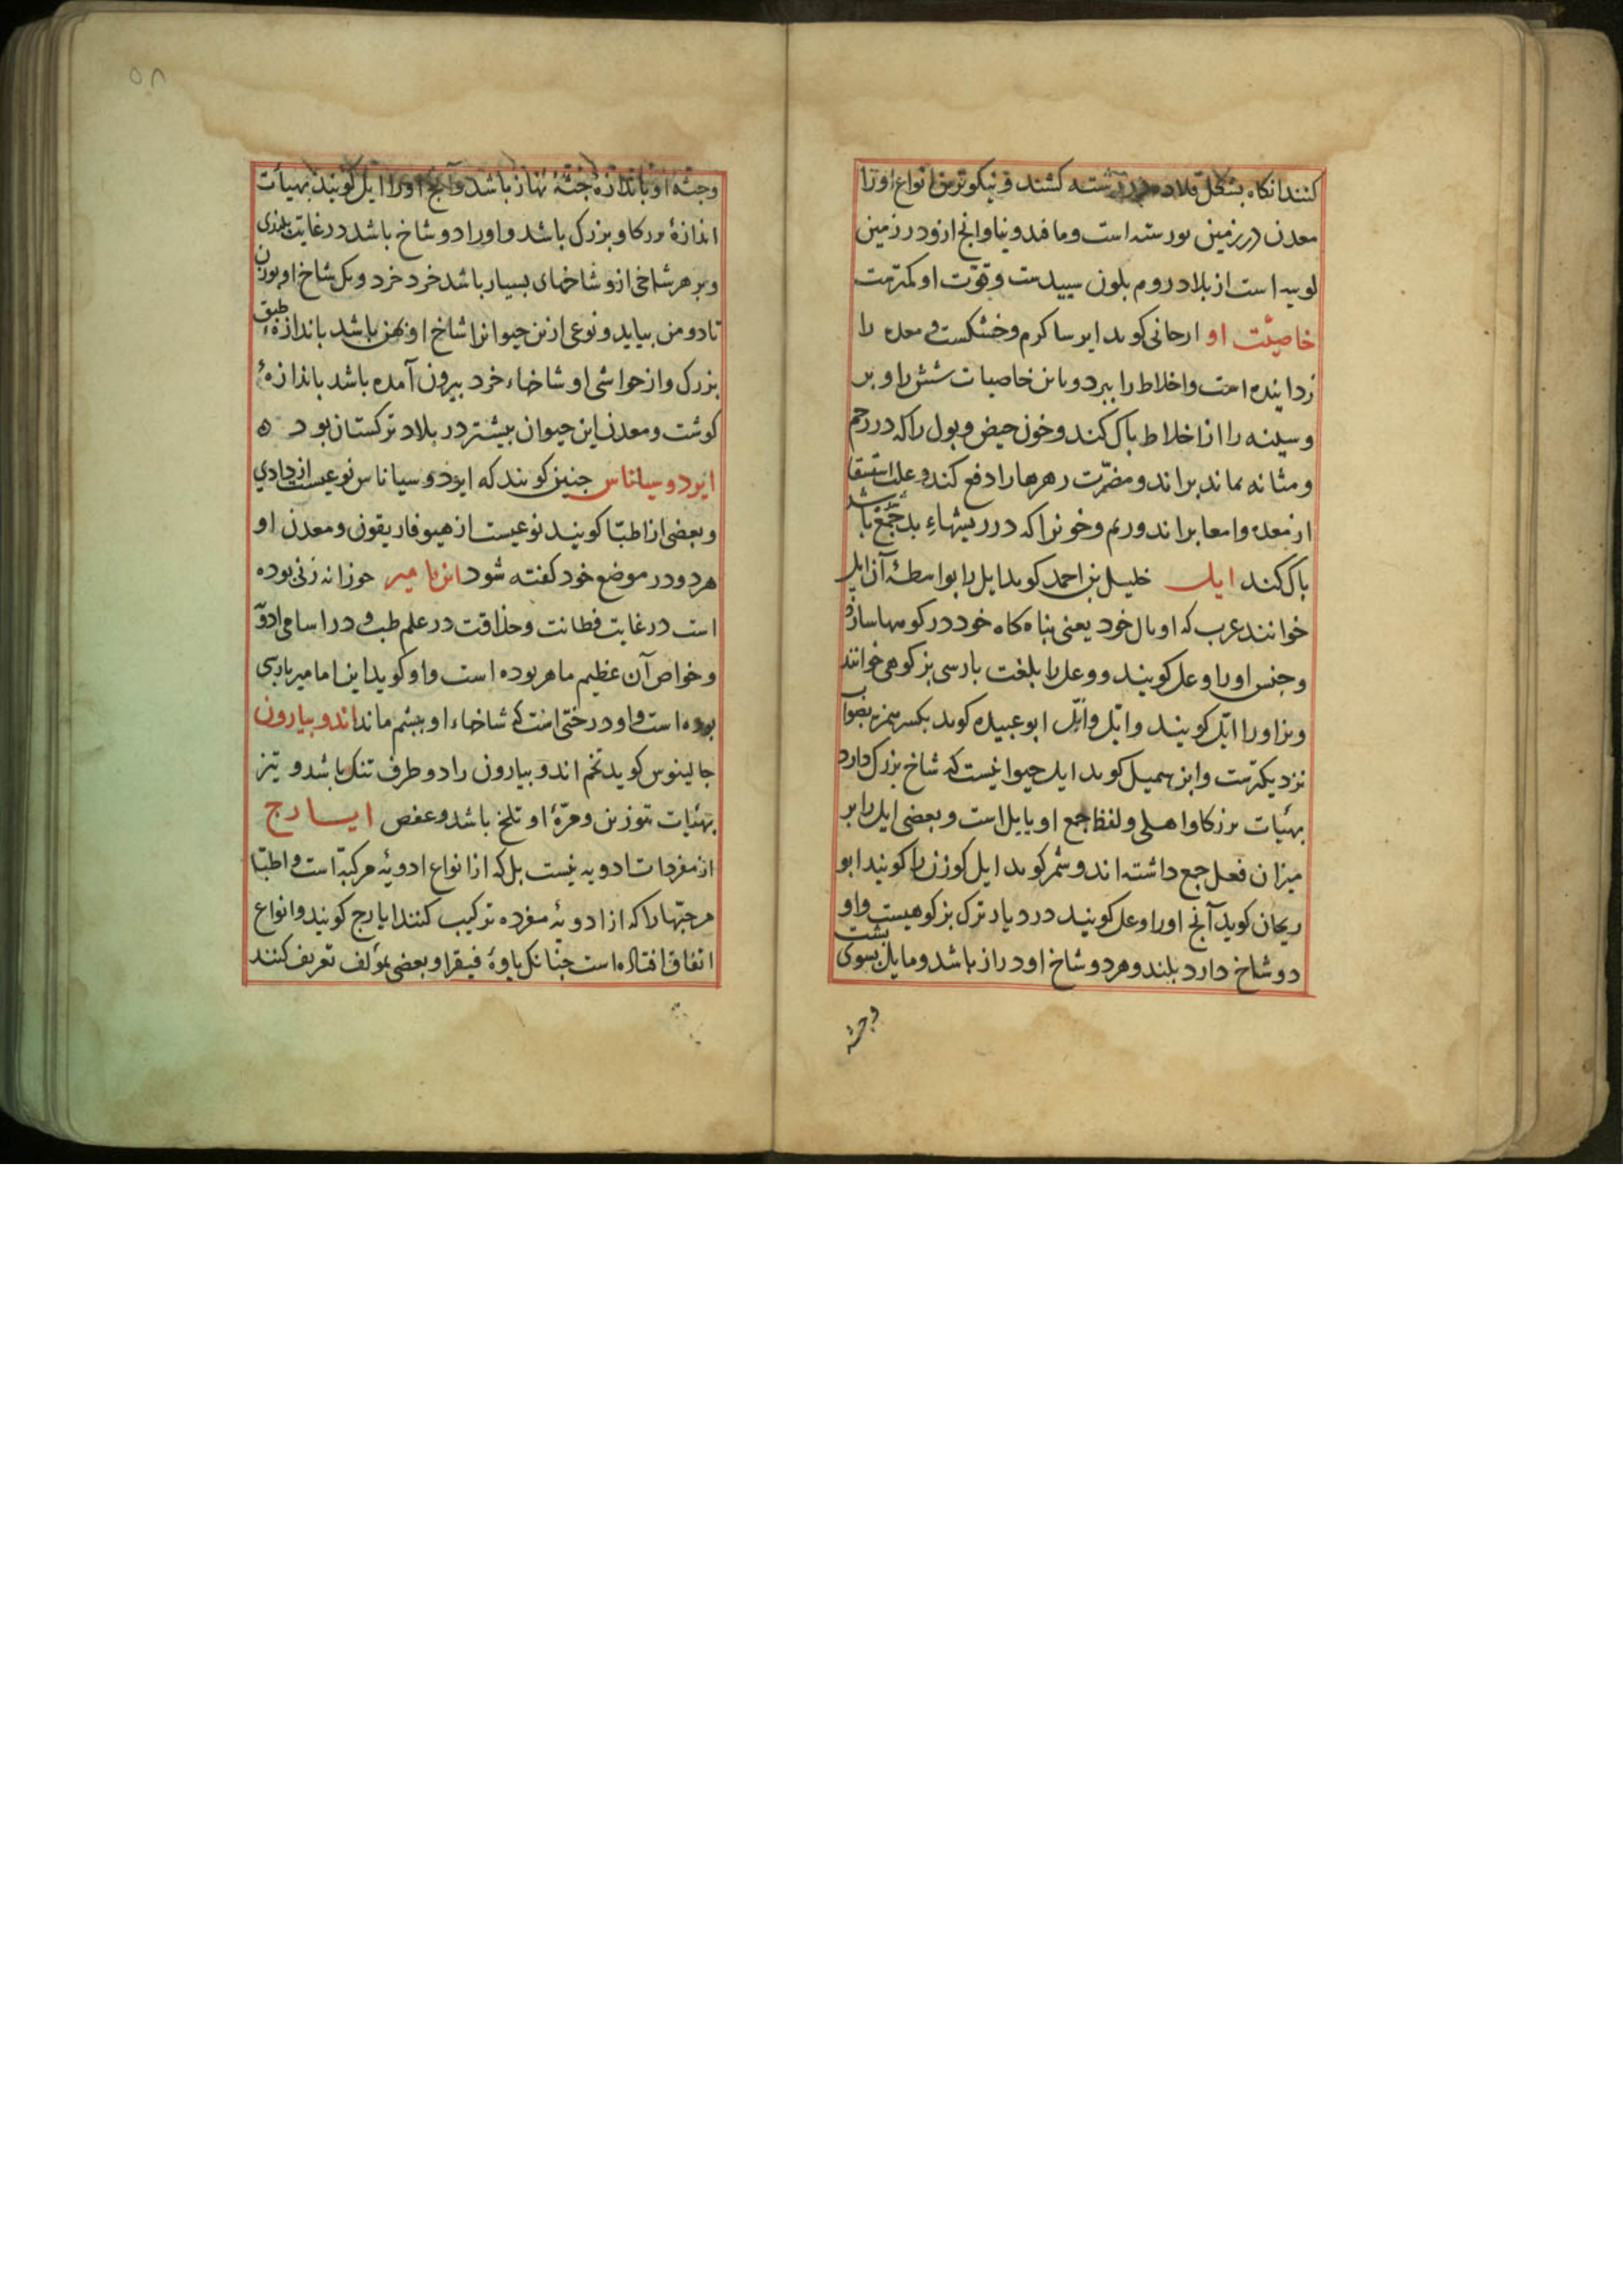 کنند انکاه بشکل قلاده در رشته کشند و نیکوترین انواع او ترا
معدن در زمین بورسته است و ماقدونیا و انج ازو در زمین
لوبیه است از بلاد روم بلون سپیدست و قوّت او کمترست
خاصیّت او ارجانی کوید ایرسا کرم و خشکست و معده را
زداینده است و اخلاط را ببرد و باین خاصیات شش را و بر
و سینه را از اخلاط پاک کند و خون حیض و بول را که در رحم
و مثانه بماند براند و مضرّت زهرها را دفع کند و علت استسقا
از معده و امعا براند و ریم و خونرا که در ریشهاء بد جمع باشد
پاک کند ایل خلیل بن احمد کوید ایل را بواسطهٔ آن ایل
خوانند عرب که او مال خود یعنی پناه کاه خود در کوهها سازد
و جنس او را وعل کویند و وعل را بلغت پارسی بز کوهی خوانند
و نر او را ایّل کویند و ایّل و اُیّل ابو عبیده کوید بکسر همزه بصواب
نزدیکترست و ابن سمیل کوید ایل حیوانیست که شاخ بزرک دارد
بهیأت نرزکاو اهلی و لفظ جمع او یایل است و بعضی ایل را بر
میزان فعل جمع داشته اند و شمر کوید ایل کوزن را کویند ابو
ریحان کوید آنج او را وعل کویند در دیار ترک بز کوهیست و او
دو شاخ دارد بلند و هر دو شاخ او دراز باشد و مایل بسوی پشت
و جثه
۵۸
و جثهٔ او باندازهٔ جثهٔ نهاز باشد و آنج او را ایل کویند بهیأت
اندازهٔ نرکاو بزرک باشد و او را دو شاخ باشد در غایت بلندی
و بر هر شاخی ازو شاخهای بسیار باشد خرد خرد و یک شاخ او بوزن
تا دو من بیاید و نوعی ازین حیوانرا شاخ او پهن باشد باندازهٔ طبق
بزرک و از حواشی او شاخهاء خرد بیرون آمده باشد باندازهٔ
کوشت و معدن این حیوان بیشتر در بلاد ترکستان بود ه
ایردوسیاناس جنین کویند که ایودوسیاناس نوعیست از دادی
و بعضی از اطبّا کویند نوعیست از هیوفاریقون و معدن او
هر دو در موضع خود کفته شود این مامیر حوزانه زنی بوده
است در غایت فطانت و حذاقت در علم طب و در اسامی ادویه
و خواص آن عظیم ماهر بوده است و او کوید این مامیر پارسی
بوده است و او درختی است که شاخهاء او بپشم ماند اندوبیارون
جالینوس کوید تخم اندوبیارون را دو طرف تنک باشد و تیز
بهیّات تبوزین و مزّهٔ او تلخ باشد و عفص ایارج
از مفردات ادویه نیست بل که از انواع ادویهٔ مرکبّه است و اطبّا
هر حبّها را که از ادویهٔ مفرده ترکیب کنند ایارج کویند و انواع
اتفاق افتاده است جنانک یاوهٔ فیقرا و بعضی بمؤلف تعریف کنند